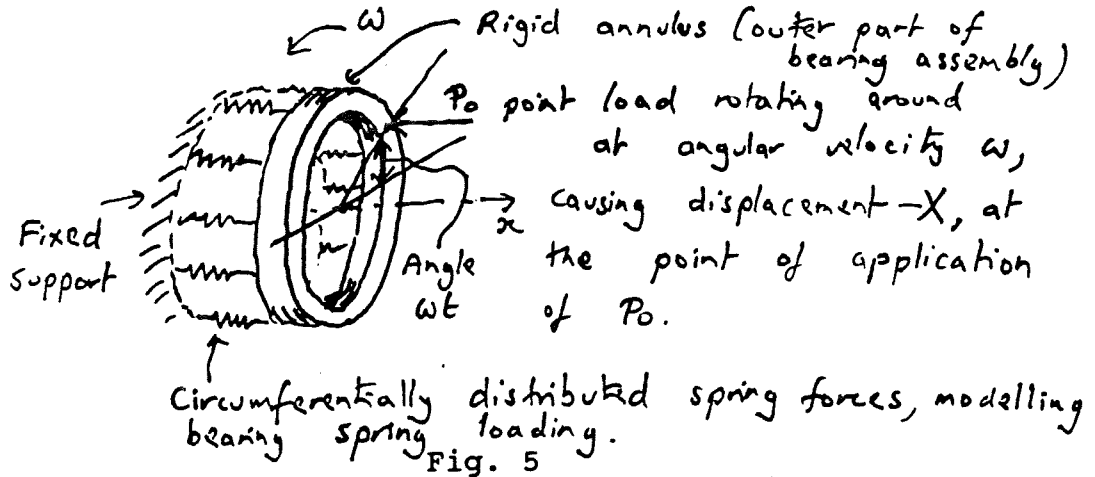 ω
Rigid annulus (outer part of
bearing assembly)
P₀ point load rotating around
at angular velocity ω,
causing displacement -X, at
the point of application
of P₀.
x
Fixed
support
Angle
ωt
Circumferentially distributed spring forces, modelling
bearing spring loading.
Fig. 5